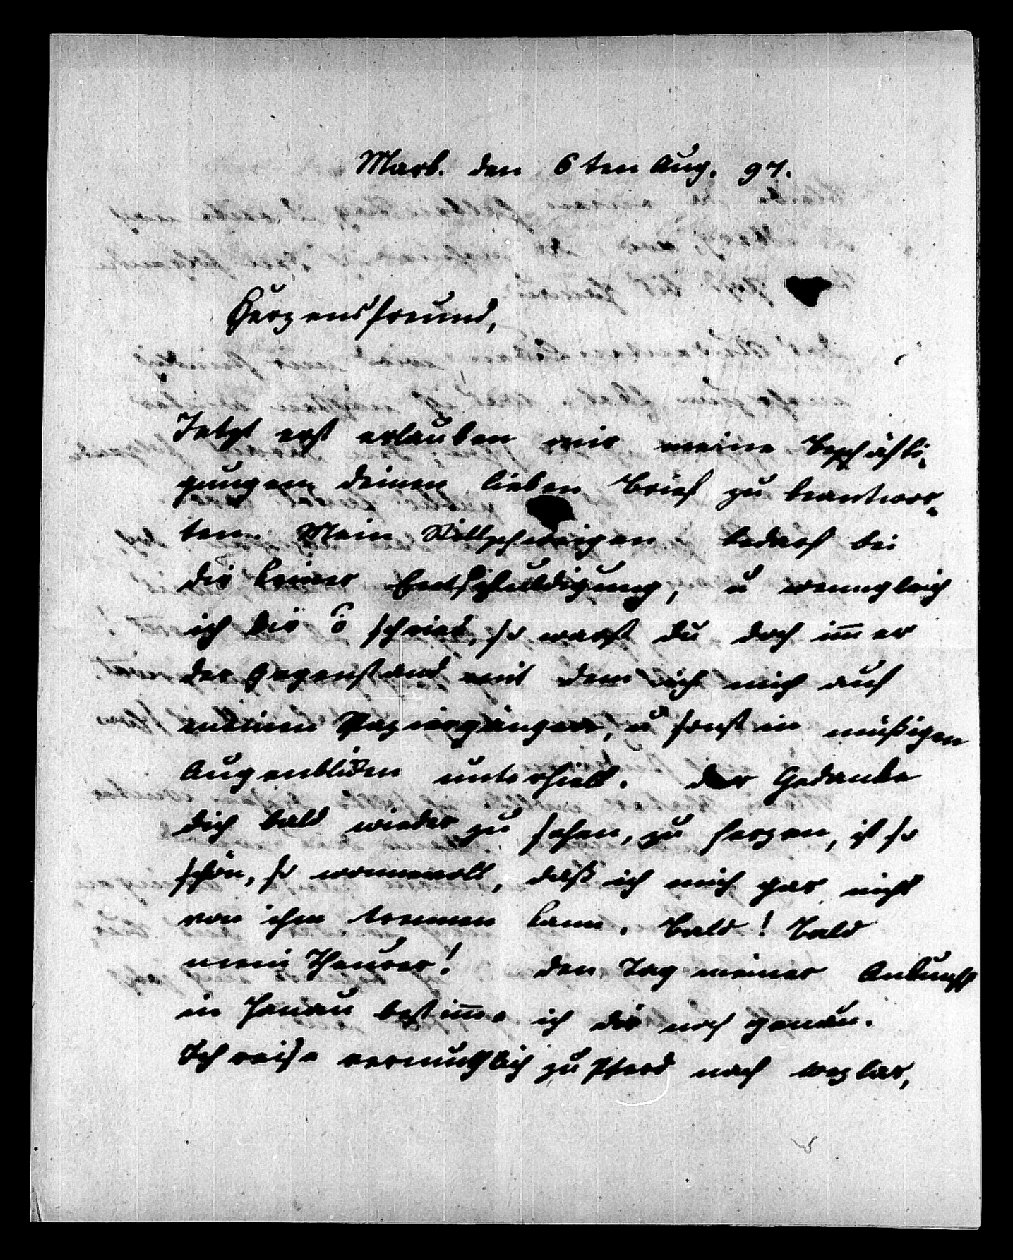 Marb. den 6ten Aug. 97.
Herzensfreund,
Jetzt erst erlauben mir meine Beschäfti-
gungen deinen lieben Brief zu beantwor-
ten. Mein Stillschweigen bedarf bei
dir keiner Entschuldigung, u wenngleich
ich dir schrieb, so warst du doch im̄er
der Gegenstand mit dem ich mich auf
meinen Spaziergängen, u sonst in müßigen
Augenblicken unterhielt. Der Gedanke
dich bald wieder zu sehen, zu herzen, ist so
schön, so wonnevoll, daß ich mich gar nicht
von ihm trennen kann. Bald! Bald
mein Theurer! Den Tag meiner Ankunft
in Hanau bestim̄e ich dir noch genau.
Ich reise vermuthlich zu Pferd nach Wezlar,